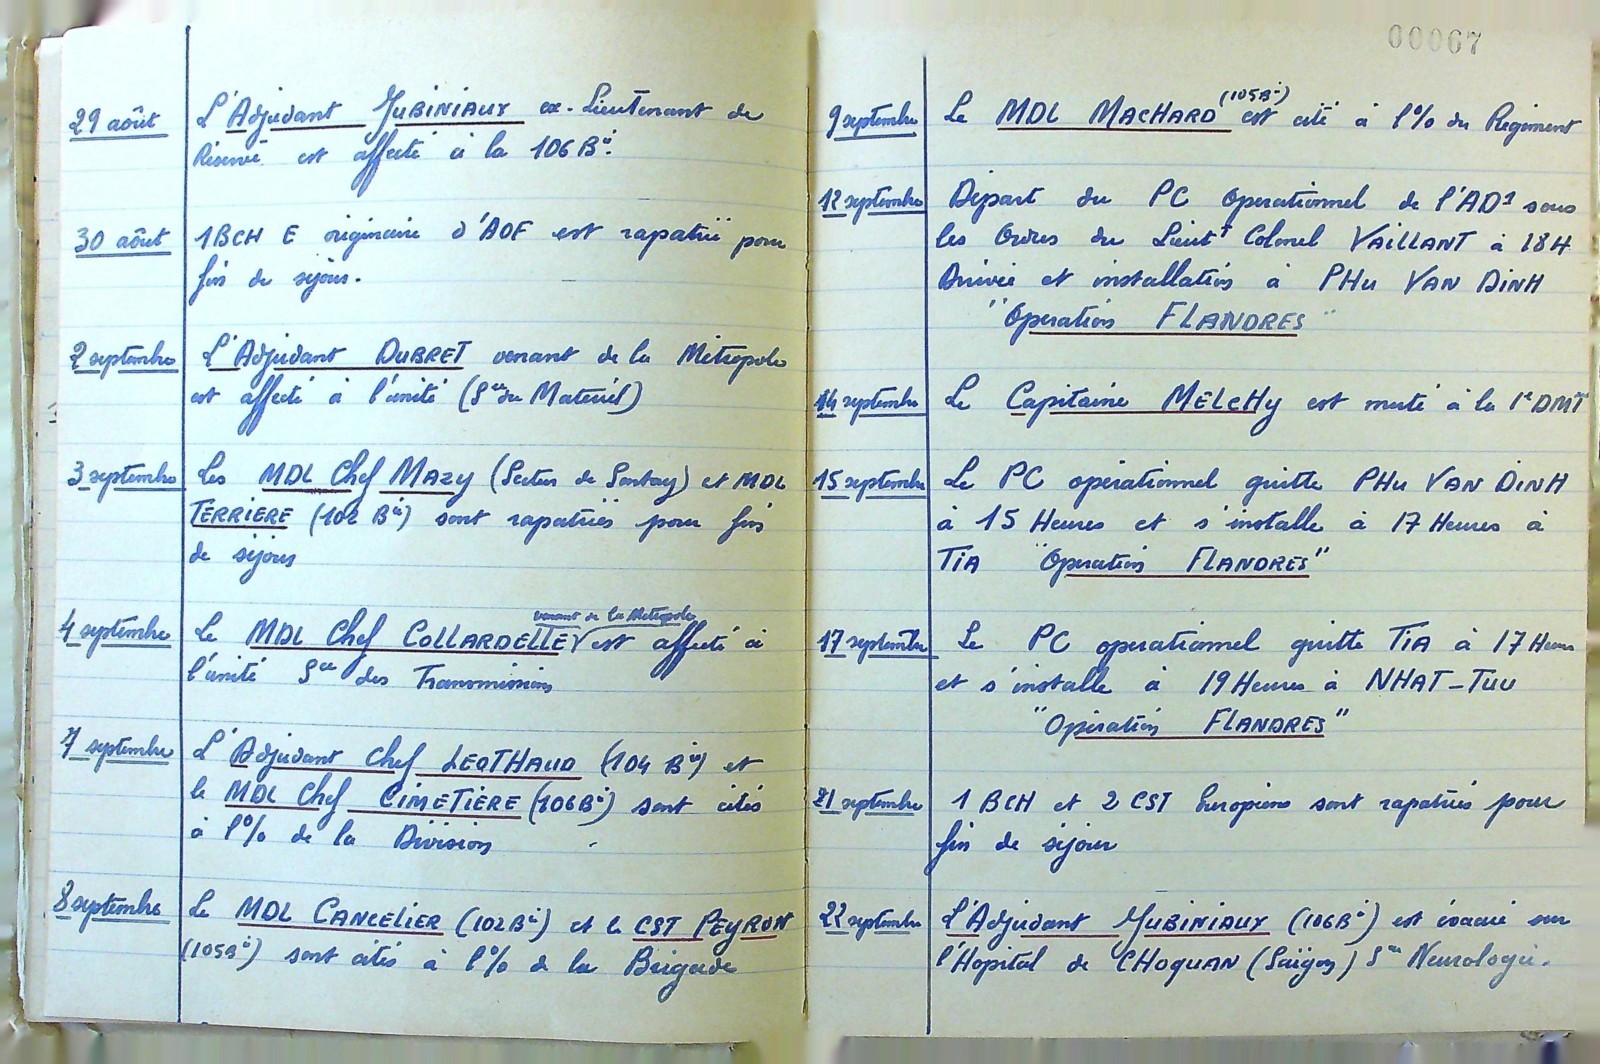 29 août L'Adjudant JUBINIAUX ex-Lieutenant de
Réserve est affecté à la 106 Bie.
30 août 1 BCH E originaire d'AOF est rapatrié pour
fin de séjour.
2 septembre L'Adjudant DUBRET venant de la Métropole
est affecté à l'unité (Sce du Matériel)
3 septembre Les MDL Chef MAZY (Secteur de Sontay) et MDL
TERRIERE (102 Bie) sont rapatriés pour fin
de séjour
venant de la Métropole
4 septembre Le MDL Chef COLLARDELLE V est affecté à
l'unité Sce des Transmissions
7 septembre L'Adjudant Chef LEOTHAUD (104 Bie) et
le MDL Chef CIMETIÈRE (106 Bie) sont cités
à l'% de la Division
8 septembre Le MDL CANCELIER (102 Bie) et le CST PEYRON
(105 Bie) sont cités à l'% de la Brigade
00067
(105 Bie)
9 septembre Le MDL MACHARD est cité à l'% du Régiment
12 septembre Départ du PC Opérationnel de l'AD1 sous
les Ordres du Lieutt Colonel VAILLANT à 18H
Arrivée et installation à PHU VAN DINH
"Opération FLANDRES"
14 septembre Le Capitaine MELCHY est muté à la 1e DMT
15 septembre Le PC opérationnel quitte PHU VAN DINH
à 15 Heures et s'installe à 17 Heures à
TIA "Opération FLANDRES"
17 septembre Le PC opérationnel quitte TIA à 17 Heures
et s'installe à 19 Heures à NHAT-TUU
"Opération FLANDRES"
21 septembre 1 BCH et 2 CST Européens sont rapatriés pour
fin de séjour
22 septembre L'Adjudant JUBINIAUX (106 Bie) est évacué sur
l'Hopital de CHOQUAN (Saïgon) Sce Neurologie.